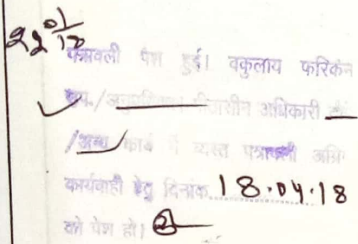 पत्रावली पेश हुई। वकुलाय फरिकेन
उप./अनुपस्थित पीठासीन अधिकारी
/अन्य कार्य में व्यस्त पत्रावली अग्रि
कार्यवाही हेतु दिनांक 18.04.18
को पेश हो।